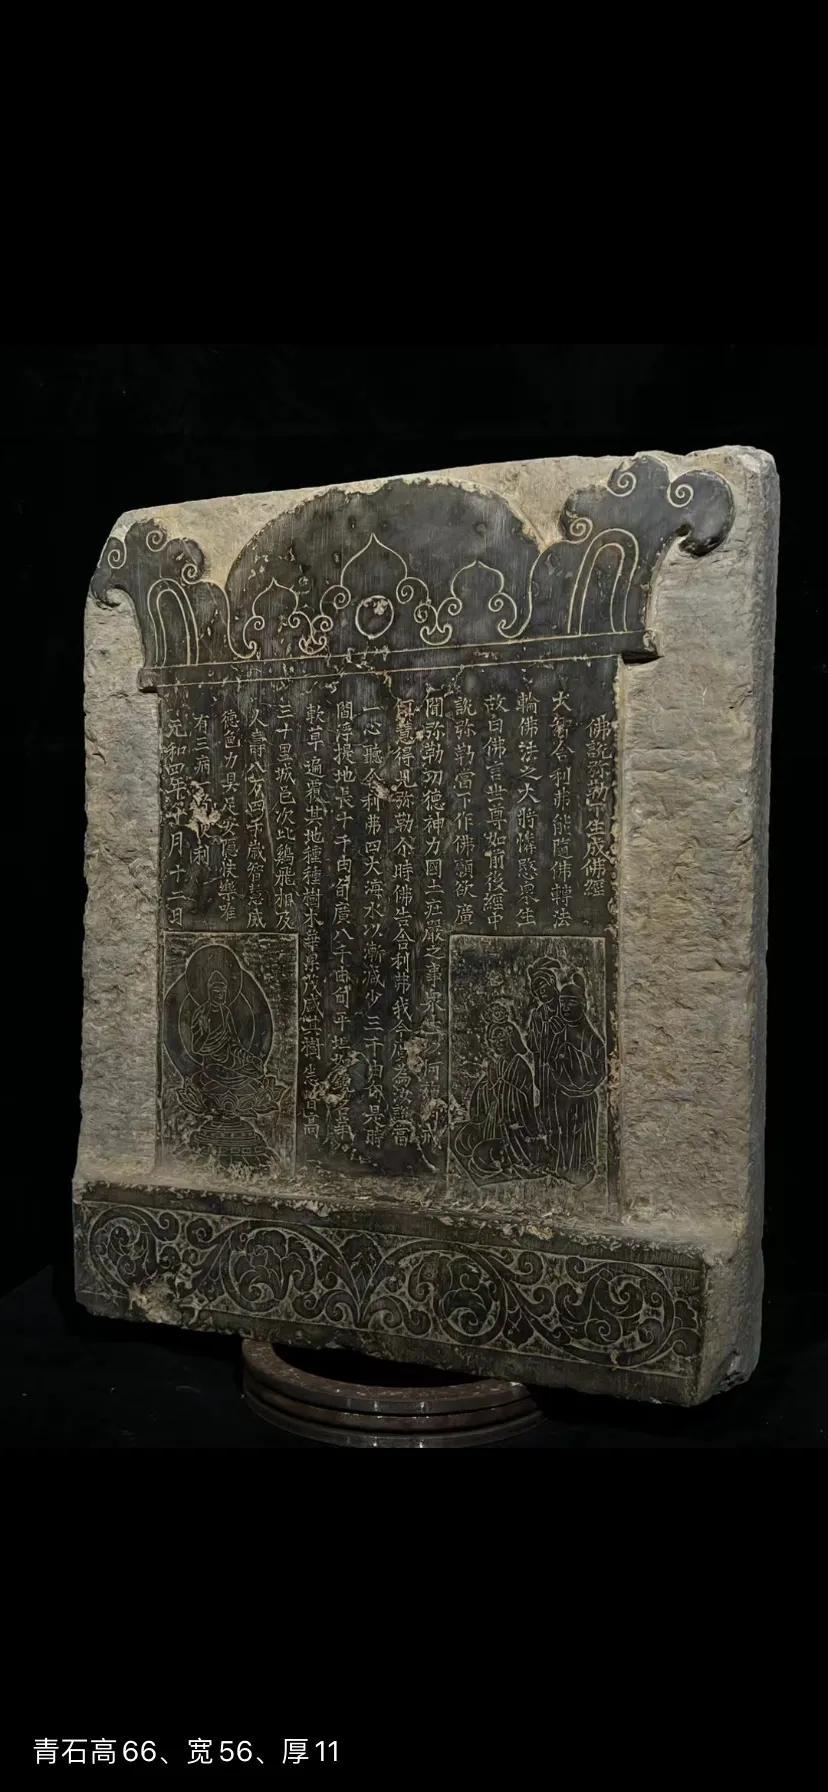 佛說弥勒下生成佛經
大智舍利弗能隨佛轉法
輪佛法之大將憐愍眾生
故白佛言世尊如前後經中
說弥勒當下作佛願欲廣
聞弥勒功德神力國土莊嚴之事眾 何 戒
慧得見弥勒尒時佛告舍利弗我今廣為汝說當
一心聽舍利弗四大海水以漸減少三千由旬是時
閻浮提地長十千由旬廣八千由旬平坦 鏡名華
軟草遍覆其地種種樹木華果茂盛其樹悉皆高
三十里城邑次比鷄飛相及
人壽八万四千歲智慧威
德色力具足安隱快樂唯
有三病 利
元和四年 月十二日
青石高66、宽56、厚11